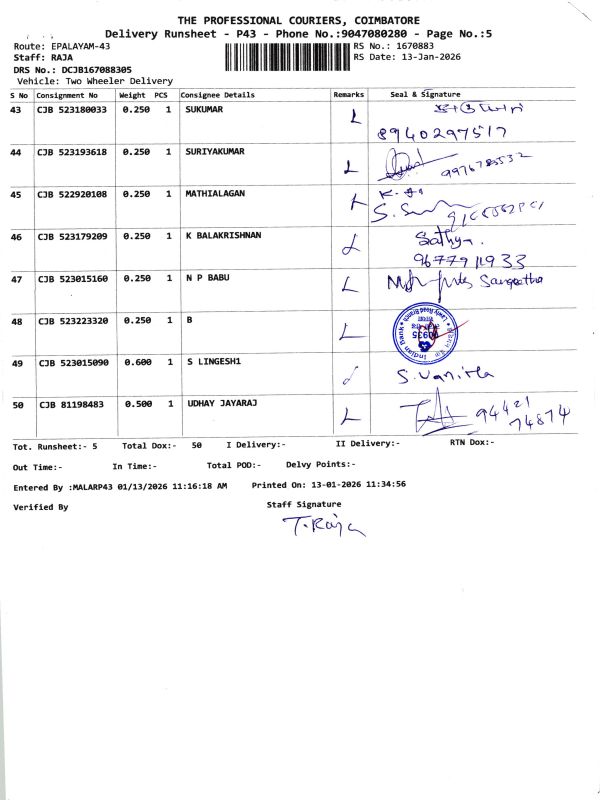 THE PROFESSIONAL COURIERS, COIMBATORE
Delivery Runsheet - P43 - Phone No.:9047080280 - Page No.:5
Route: EPALAYAM-43
RS No.: 1670883
Staff: RAJA
RS Date: 13-Jan-2026
DRS No.: DCJB167088305
Vehicle: Two Wheeler Delivery
S No Consignment No Weight PCS Consignee Details Remarks Seal & Signature
43 CJB 523180033 0.250 1 SUKUMAR L
8940297517
44 CJB 523193618 0.250 1 SURIYAKUMAR L
45 CJB 522920108 0.250 1 MATHIALAGAN L
46 CJB 523179209 0.250 1 K BALAKRISHNAN L Sathya.
9677911933
47 CJB 523015160 0.250 1 N P BABU L Sangeetha
48 CJB 523223320 0.250 1 B L Indian Bank
49 CJB 523015090 0.600 1 S LINGESH1 S. Vanitha
50 CJB 81198483 0.500 1 UDHAY JAYARAJ L 94421
74874
Tot. Runsheet:- 5 Total Dox:- 50 I Delivery:- II Delivery:- RTN Dox:-
Out Time:- In Time:- Total POD:- Delvy Points:-
Entered By :MALARP43 01/13/2026 11:16:18 AM Printed On: 13-01-2026 11:34:56
Verified By Staff Signature
T. Raja